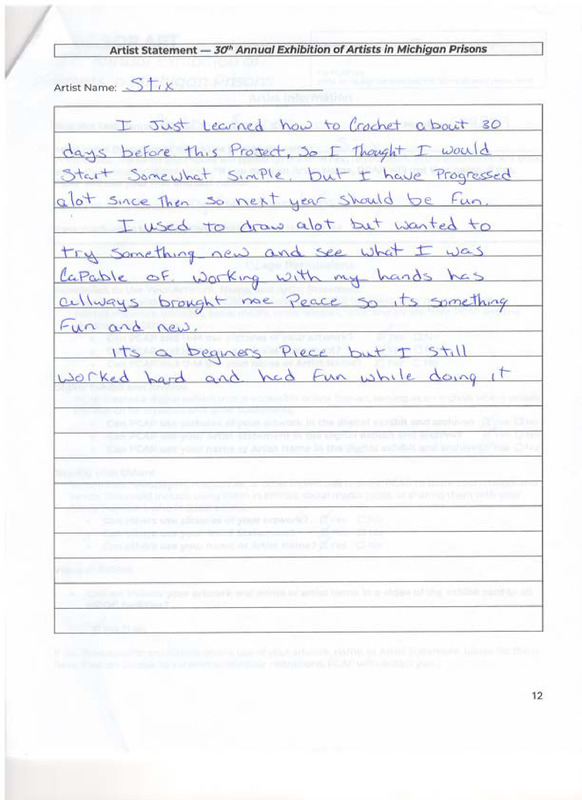 Artist Statement — 30th Annual Exhibition of Artists in Michigan Prisons
Artist Name: Stix
I Just Learned how to Crochet about 30
days before this Project, So I Thought I would
Start Somewhat Simple. but I have Progressed
alot Since Then so next year should be Fun.
I used to draw alot but wanted to
try something new and see what I was
Capable of. Working with my hands has
allways brought me Peace so its something
Fun and new.
Its a beginers Piece but I still
worked hard and had Fun while doing it
12